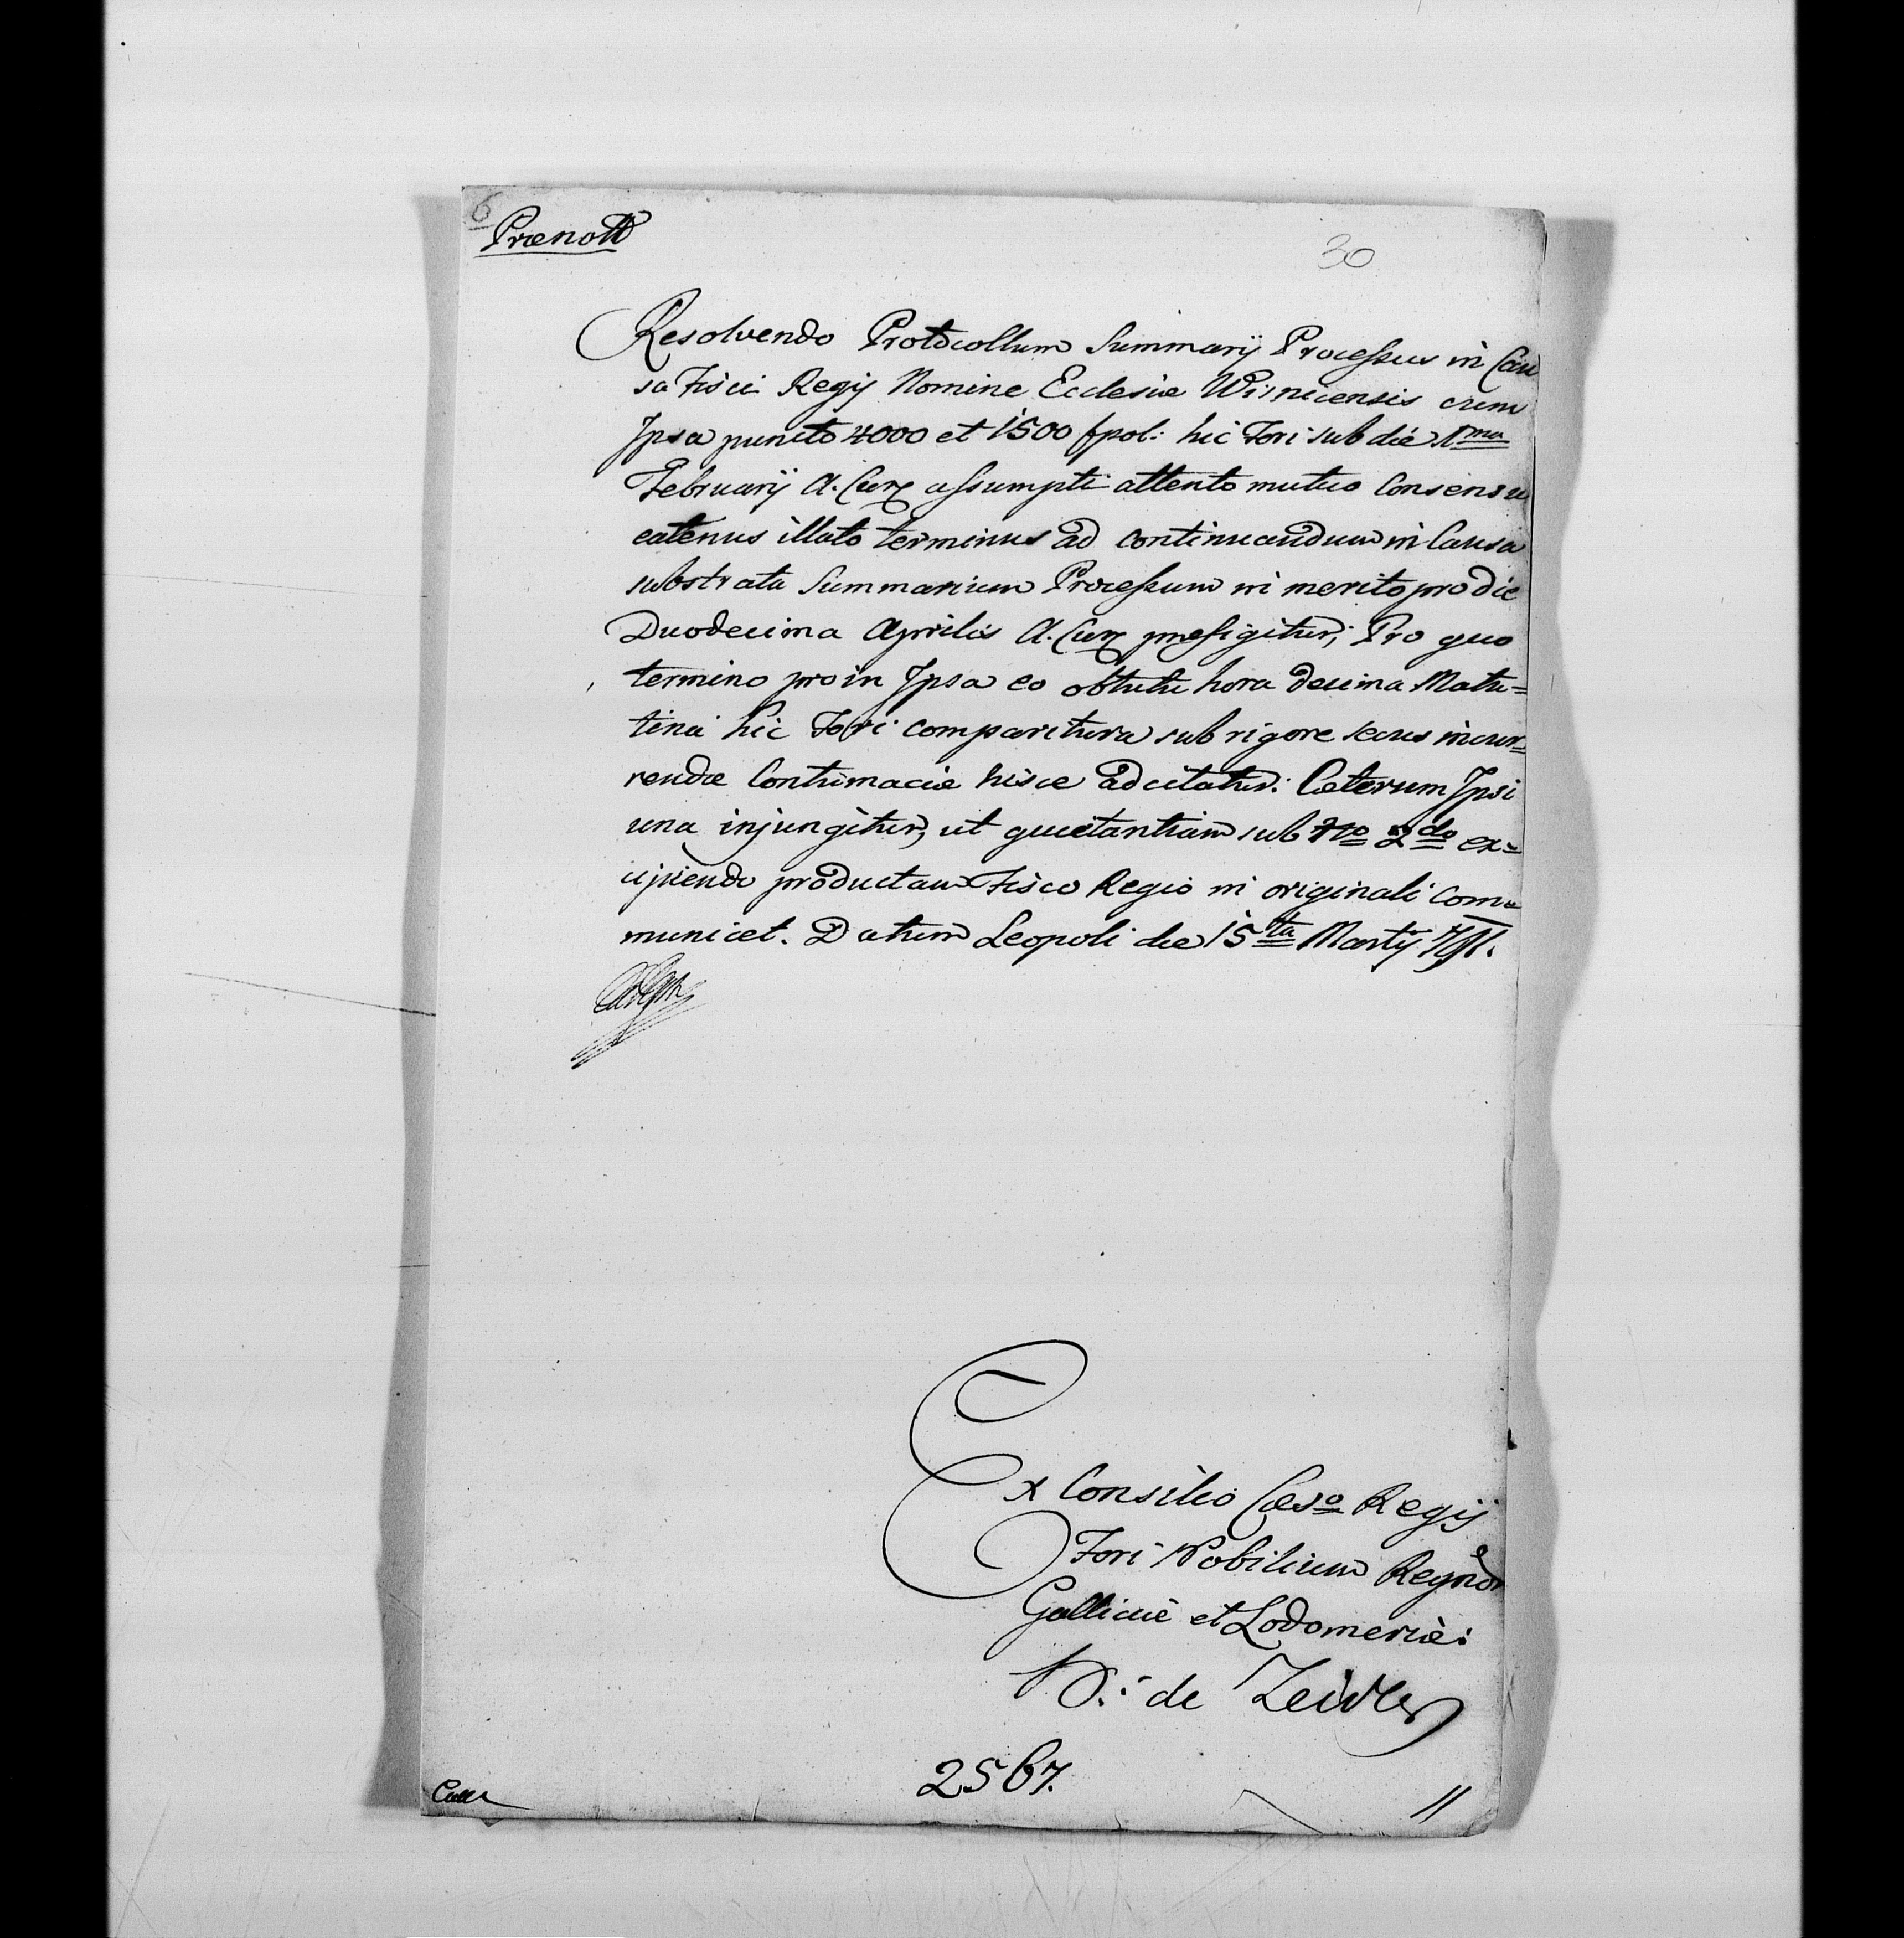 6
Prænott
30
Resolvendo Protocollum Summarij Processus in Cau
sa Fisci Regij Nomine Ecclesiæ Wisnicensis cum
Ipsa puncto 4000 et 1500 fpol: hic Fori sub die 1ma
Februarij A. Curr assumpti attento mutuo Consensu
eatenus illato terminus ad continuandum in Causa
substrata Summarium Processum in merito pro die
Duodecima Aprilis A. Curr præfigitur; Pro quo
termino proin Ipsa eo obtutu hora decima Matu=
tina hic Fori comparitura sub rigore secus incur=
rendæ Contumaciæ hisce adcitatur. Cæterum Ipsi
una injungitur, ut quietantiam sub Nro 2do ex=
cipiendo productam Fisco Regio in originali com=
municet. Datum Leopoli die 15ta Martij 791.
Ex Consilio Cæso Regij
Fori Nobilium Regnor
Galliciæ et Lodomeriæ:
de
2567.